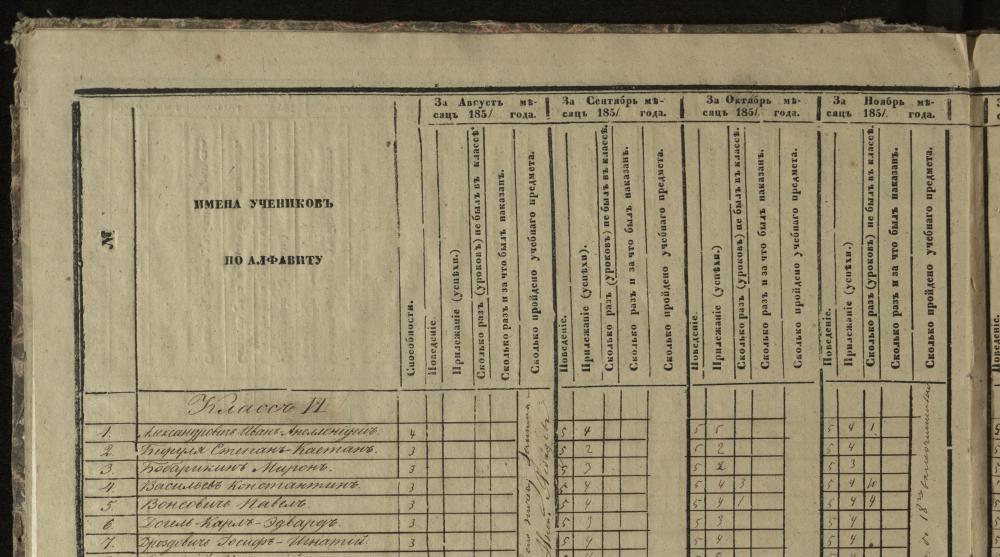 За Августъ мѣ-
сяцъ 185/ года.
За Сентябрь мѣ-
сяцъ 185/ года.
За Октябрь мѣ-
сяцъ 185/ года.
За Ноябрь мѣ-
сяцъ 185/ года.
№
ИМЕНА УЧЕНИКОВЪ
ПО АЛФАВИТУ
Способности.
Поведеніе.
Прилежаніе (успѣхи.)
Сколько разъ (уроковъ) не былъ въ классѣ.
Сколько разъ и за что былъ наказанъ.
Сколько пройдено учебнаго предмета.
Поведеніе.
Прилежаніе (успѣхи).
Сколько разъ (уроковъ) не былъ въ классѣ.
Сколько разъ и за что былъ наказанъ.
Сколько пройдено учебнаго предмета.
Поведеніе.
Прилежаніе (успѣхи.)
Сколько разъ (уроковъ) не былъ въ классѣ.
Сколько разъ и за что былъ наказанъ.
Сколько пройдено учебнаго предмета.
Поведеніе.
Прилежаніе (успѣхи.)
Сколько разъ (уроковъ) не былъ въ классѣ.
Сколько разъ и за что былъ наказанъ.
Сколько пройдено учебнаго предмета.
Поведеніе.
Классъ II
1. Александровичъ Иванъ-Аполлонаріус. 4 5 4 5 5 5 4 1
2. Степанъ-Каетанъ. 3 5 2 5 2 5 4
3. Бобарикинъ Миронъ. 3 5 3 5 2 5 3
4. Васильевъ Константинъ. 3 5 4 5 4 3 5 4 10
5. Вонсовичъ Павелъ. 3 5 4 5 4 1 5 4 4
6. Догель-Карлъ-Эдвардъ. 3 5 3 5 3 5 4
7. Дроздовичъ Іосифъ-Игнатій. 3 5 4 5 4 5 4